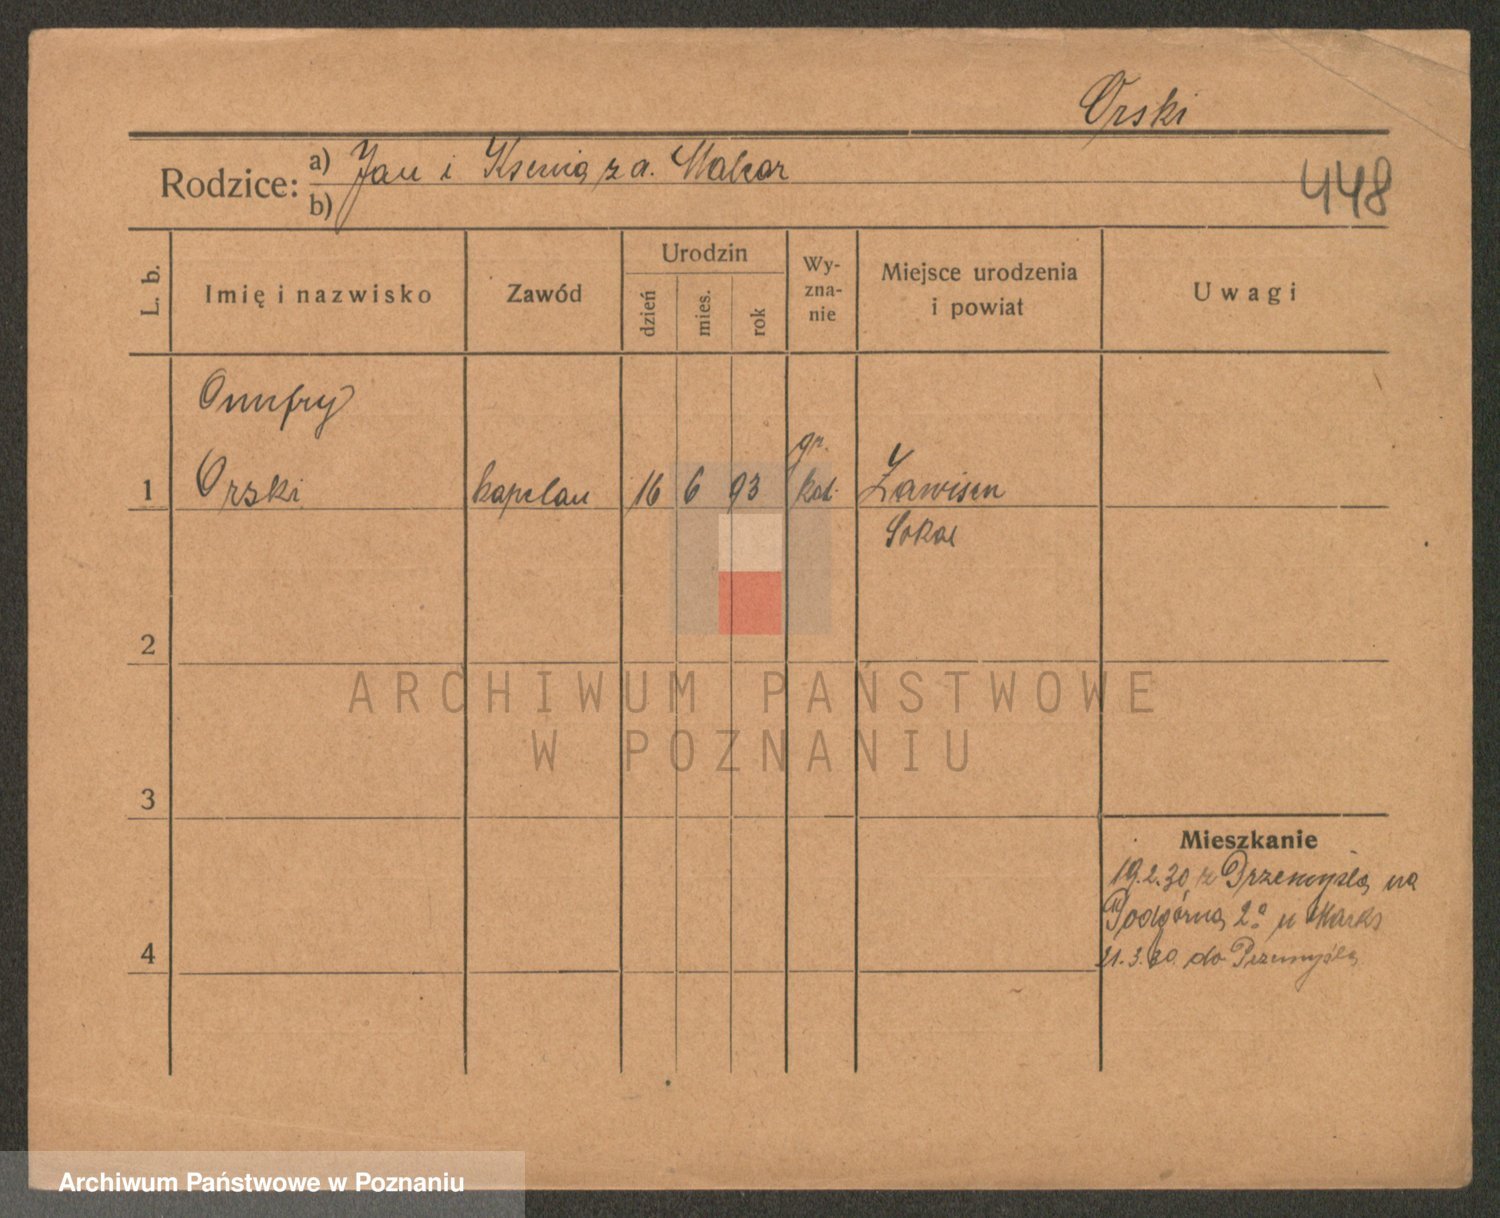 Orski
Rodzice: a) Jan i Ksenia z d. Makar
b)
448
L. b.
Imię i nazwisko
Zawód
Urodzin
dzień
mies.
rok
Wy-
zna-
nie
Miejsce urodzenia
i powiat
Uwagi
Onufry
1 Orski kapelan 16 6 93 gr. kat. Zawisen
Sokal
2
ARCHIWUM PAŃSTWOWE
W POZNANIU
3
Mieszkanie
19.2.30 z Przemyśla na
Podgórną 2a u Marks
4
21.3.30 do Przemyśla
Archiwum Państwowe w Poznaniu